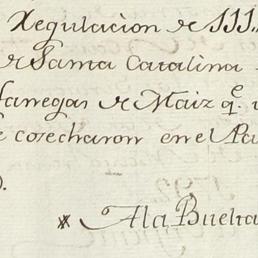 Regulacion de III
de Santa Catalina
fanegas de Maiz q.e
cosecharon en el Pa
A la Buelta